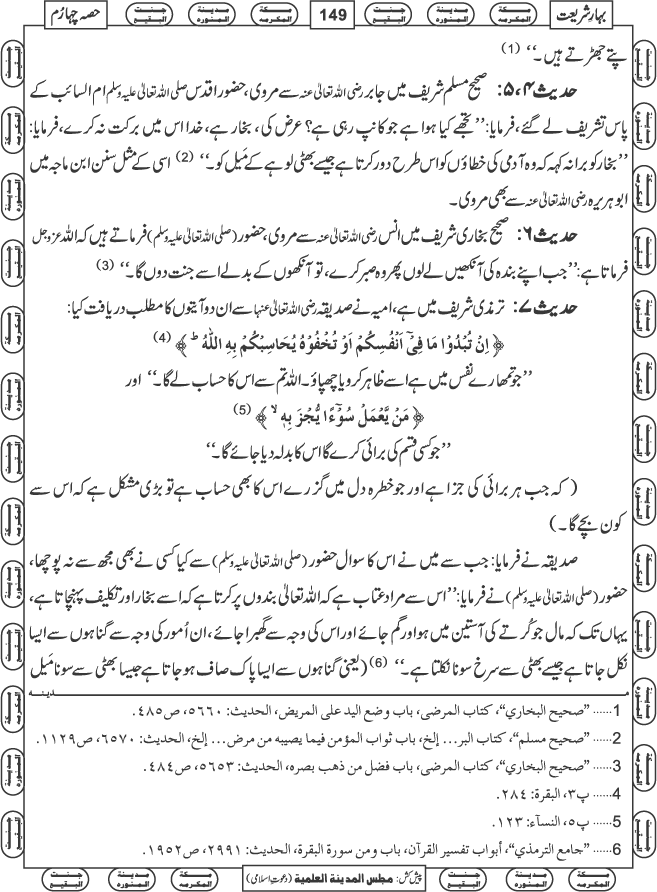 بہارِ شریعت
149
حصہ چہارم
پتے جھڑتے ہیں۔‘‘ (1)
حدیث ۴، ۵: صحیح مسلم شریف میں جابر رضی اللہ تعالیٰ عنہ سے مروی، حضور اقدس صلی اللہ تعالیٰ علیہ وسلم ام السائب کے
پاس تشریف لے گئے، فرمایا: ’’تجھے کیا ہوا ہے جو کانپ رہی ہے؟ عرض کی، بخار ہے، خدا اس میں برکت نہ کرے، فرمایا:
’’بخار کو بُرا نہ کہہ کہ وہ آدمی کی خطاؤں کو اس طرح دور کرتا ہے جیسے بھٹی لوہے کے مَیل کو۔‘‘ (2) اسی کے مثل سنن ابن ماجہ میں
ابوہریرہ رضی اللہ تعالیٰ عنہ سے بھی مروی۔
حدیث ۶: صحیح بخاری شریف میں انس رضی اللہ تعالیٰ عنہ سے مروی، حضور (صلی اللہ تعالیٰ علیہ وسلم) فرماتے ہیں کہ اللہ عزوجل
فرماتا ہے: ’’جب اپنے بندہ کی آنکھیں لے لوں پھر وہ صبر کرے، تو آنکھوں کے بدلے اسے جنت دوں گا۔‘‘ (3)
حدیث ۷: ترمذی شریف میں ہے، امیہ نے صدیقہ رضی اللہ تعالیٰ عنہا سے ان دو آیتوں کا مطلب دریافت کیا:
﴿ اِنْ تُبْدُوْا مَا فِیْۤ اَنْفُسِكُمْ اَوْ تُخْفُوْهُ یُحَاسِبْكُمْ بِهِ اللّٰهُ ؕ ﴾ (4)
’’جو تمھارے نفس میں ہے اسے ظاہر کرو یا چھپاؤ۔ اللہ تم سے اس کا حساب لے گا۔‘‘ اور
﴿ مَنْ یَّعْمَلْ سُوْٓءًا یُّجْزَ بِهٖ ۙ ﴾ (5)
’’جو کسی قسم کی برائی کرے گا اس کا بدلہ دیا جائے گا۔‘‘
( کہ جب ہر برائی کی جزا ہے اور جو خطرہ دل میں گزرے اس کا بھی حساب ہے تو بڑی مشکل ہے کہ اس سے
کون بچے گا۔ )
صدیقہ نے فرمایا: جب سے میں نے اس کا سوال حضور (صلی اللہ تعالیٰ علیہ وسلم) سے کیا کسی نے بھی مجھ سے نہ پوچھا،
حضور (صلی اللہ تعالیٰ علیہ وسلم) نے فرمایا: ’’اس سے مراد عتاب ہے کہ اللہ تعالیٰ بندوں پر کرتا ہے کہ اسے بخار اور تکلیف پہنچاتا ہے،
یہاں تک کہ مال جو کُرتے کی آستین میں ہو اور گم جائے اور اس کی وجہ سے گھبرا جائے، ان اُمور کی وجہ سے گناہوں سے ایسا
نکل جاتا ہے جیسے بھٹی سے سرخ سونا نکلتا ہے۔‘‘ (6) (یعنی گناہوں سے ایسا پاک صاف ہو جاتا ہے جیسا بھٹی سے سونا مَیل
مدینہ
1...... ”صحیح البخاري“، کتاب المرضی، باب وضع الید علی المریض، الحدیث: ۵۶۶۰، ص۴۸۵.
2...... ”صحیح مسلم“، کتاب البر... إلخ، باب ثواب المؤمن فیما یصیبه من مرض... إلخ، الحدیث: ۶۵۷۰، ص۱۱۲۹.
3...... ”صحیح البخاري“، کتاب المرضی، باب فضل من ذهب بصره، الحدیث: ۵۶۵۳، ص۴۸۴.
4...... پ۳، البقرة: ۲۸۴.
5...... پ۵، النسآء: ۱۲۳.
6...... ”جامع الترمذي“، أبواب تفسیر القرآن، باب ومن سورة البقرة، الحدیث: ۲۹۹۱، ص۱۹۵۲.
پیش کش: مجلس المدینۃ العلمیۃ (دعوتِ اسلامی)